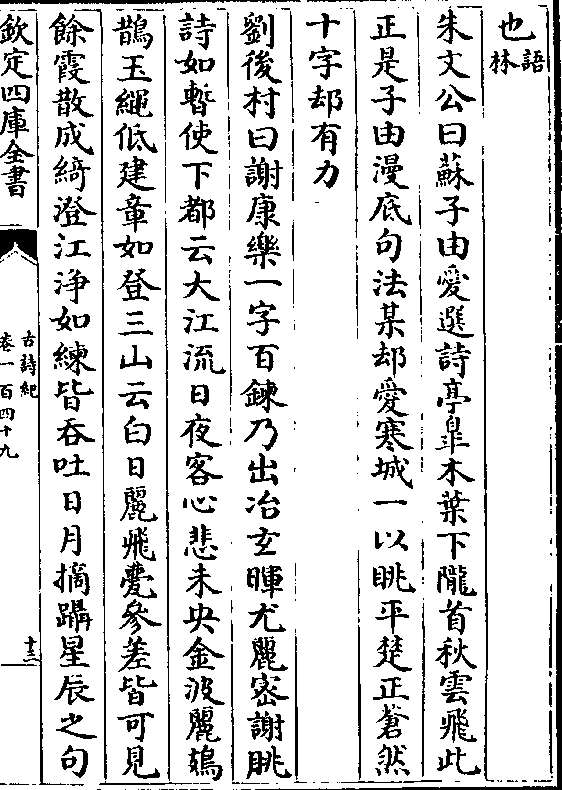 也語林
朱文公曰蘇子由愛選詩亭臯木葉下隴首秋雲飛此
正是子由漫底句法某却愛寒城一以眺平楚正蒼然
十字却有力
劉後村曰謝康樂一字百鍊乃出冶玄暉尤麗密謝朓
詩如暫使下都云大江流日夜客心悲未央金波麗鳷
鵲玉繩低建章如登三山云白日麗飛甍參差皆可見
餘霞散成綺澄江浄如練皆吞吐日月摘躡星辰之句
欽定四庫全書
古詩紀
卷一百四十九
十三